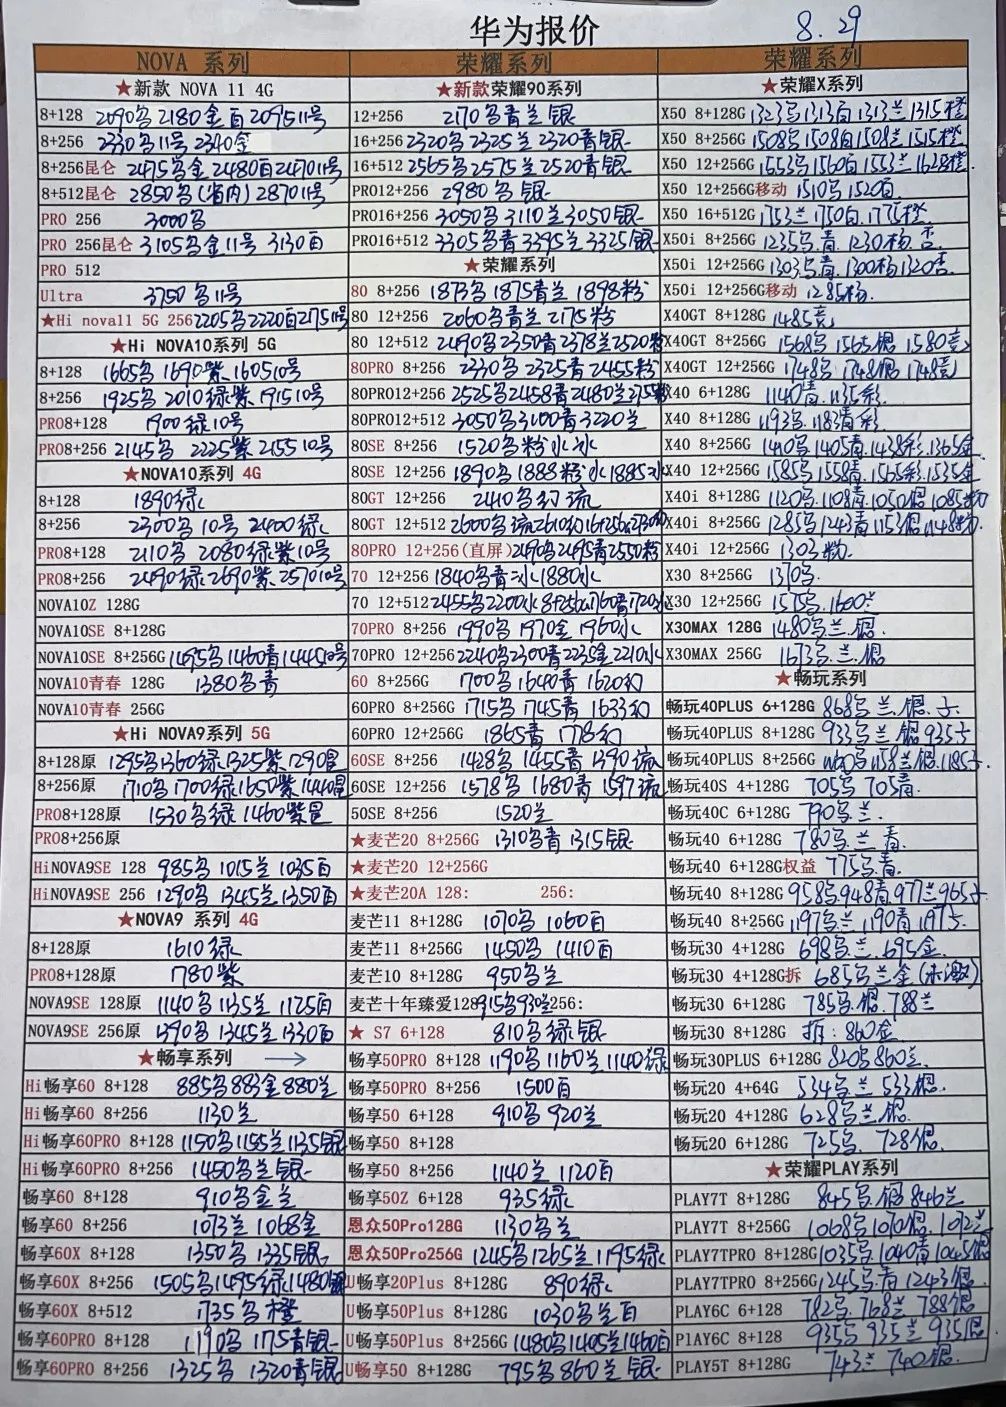 华为报价
8.29
NOVA 系列
★新款 NOVA 11 4G
8+128 2090鸟 2180金百 2095 11号
8+256 2330鸟 11号 2340金
8+256昆仑 2475鸟金 2480百 2470 11号
8+512昆仑 2850鸟(省内) 2870 11号
PRO 256 3000鸟
PRO 256昆仑 3105鸟金11号 3130百
PRO 512
Ultra 3750鸟11号
★Hi nova11 5G 256 2205鸟2220百2175 11号
★Hi NOVA10系列 5G
8+128 1665鸟 1690紫 1605 10号
8+256 1925鸟 2010绿紫 1915 10号
PRO8+128 1900绿10号
PRO8+256 2145鸟 2225紫 2155 10号
★NOVA10系列 4G
8+128 1890绿
8+256 2300鸟 10号 2400绿
PRO8+128 2110鸟 2080绿紫10号
PRO8+256 2490绿 2690紫 2570 10号
NOVA10Z 128G
NOVA10SE 8+128G
NOVA10SE 8+256G 1495鸟1460青1445 10号
NOVA10青春 128G 1380鸟青
NOVA10青春 256G
★Hi NOVA9系列 5G
8+128原 1295鸟1360绿1325紫1290昆
8+256原 1710鸟1700绿1650紫1440昆
PRO8+128原 1530鸟绿 1460紫昆
PRO8+256原
HiNOVA9SE 128 985鸟 1015兰 1035百
HiNOVA9SE 256 1290鸟 1345兰 1350百
★NOVA9 系列 4G
8+128原 1610绿
PRO8+128原 1780紫
NOVA9SE 128原 1140鸟 1135兰 1125百
NOVA9SE 256原 1390鸟 1345兰1330百
★畅享系列 →
Hi畅享60 8+128 885鸟883金880兰
Hi畅享60 8+256 1130兰
Hi畅享60PRO 8+128 1150鸟1155兰1135银
Hi畅享60PRO 8+256 1450鸟兰银
畅享60 8+128 910鸟金兰
畅享60 8+256 1073兰 1068金
畅享60X 8+128 1350鸟 1335银
畅享60X 8+256 1505鸟1495绿1480银
畅享60X 8+512 1735鸟橙
畅享60PRO 8+128 1190鸟 1175青银
畅享60PRO 8+256 1325鸟 1320青银
荣耀系列
★新款荣耀90系列
12+256 2170鸟青兰银
16+256 2320鸟 2325兰 2320青银
16+512 2565鸟2575兰 2520青银
PRO12+256 2980鸟银
PRO16+256 3050鸟3110兰3050银
PRO16+512 3305鸟青3395兰3325银
★荣耀系列
80 8+256 1873鸟1875青兰1898粉
80 12+256 2060鸟青兰 2175粉
80 12+512 2490鸟2350青2378兰2520粉
80PRO 8+256 2330鸟 2325青2455粉
80PRO12+256 2525鸟2458青2480兰
80PRO12+512 3050鸟3100青3220兰
80SE 8+256 1520鸟粉水冰
80SE 12+256 1890鸟1888粉水1885冰
80GT 12+256 2410鸟幻流
80GT 12+512 2600鸟流2610幻
80PRO 12+256(直屏) 2490鸟2495青2550粉
70 12+256 1840鸟青冰1880水
70 12+512 2455鸟2200水8+256G1760青1720冰
70PRO 8+256 1990鸟1970金1960水
70PRO 12+256 2240鸟2300青2235金2210水
60 8+256G 1700鸟1640青1620幻
60PRO 8+256G 1715鸟1745青1633幻
60PRO 12+256G 1865青 1778幻
60SE 8+256G 1428鸟 1455青1390流
60SE 12+256G 1578鸟 1680青 1597流
50SE 8+256 1520兰
★麦芒20 8+256G 1310鸟青 1315银
★麦芒20 12+256G
★麦芒20A 128: 256:
麦芒11 8+128G 1070鸟 1060百
麦芒11 8+256G 1450鸟 1410百
麦芒10 8+128G 950鸟兰
麦芒十年臻爱128 915鸟930兰256:
★ S7 6+128 810鸟绿银
畅享50PRO 8+128 1190鸟1160兰1140绿
畅享50PRO 8+256 1500百
畅享50 6+128 910鸟920兰
畅享50 8+128
畅享50 8+256 1140兰 1120百
畅享50Z 6+128 935绿
恩众50Pro128G 1130鸟兰
恩众50Pro256G 1245鸟1265兰1195绿
U畅享20Plus 8+128G 890绿
U畅享50Plus 8+128G 1030鸟兰百
U畅享50Plus 8+256G 1480鸟1405兰1460百
U畅享50 8+128G 795鸟860兰银
荣耀系列
★荣耀X系列
X50 8+128G 1323鸟1313百1313兰1315橙
X50 8+256G 1508鸟1508百1508兰1515橙
X50 12+256G 1553鸟1560百1553兰1628橙
X50 12+256G移动 1510鸟1520百
X50 16+512G 1753兰1750百1775橙
X50i 8+256G 1235鸟.青.1230杨.杏
X50i 12+256G 1303鸟青.1300杨1320杏.
X50i 12+256G移动 1285杨.
X40GT 8+128G 1485竞
X40GT 8+256G 1568鸟1565银1580竞
X40GT 12+256G 1748鸟1748银1748竞
X40 6+128G 1140青.1135彩.
X40 8+128G 1193鸟.1183青彩.
X40 8+256G 1410鸟1405青.1438彩.1365金
X40 12+256G 1585鸟1558青1565彩1535金
X40i 8+128G 1120鸟.1108青1050银1085粉
X40i 8+256G 1285鸟1243青1153银1148粉
X40i 12+256G 1303粉.
X30 8+256G 1370鸟.
X30 12+256G 1575鸟.1600兰
X30MAX 128G 1480鸟兰.银.
X30MAX 256G 1673鸟.兰.银
★畅玩系列
畅玩40PLUS 6+128G 868鸟兰.银.子
畅玩40PLUS 8+128G 933鸟兰.银935子
畅玩40PLUS 8+256G 1160鸟1158兰银.1185子
畅玩40S 4+128G 705鸟 705青.
畅玩40C 6+128G 790鸟.兰.
畅玩40 6+128G 780鸟.兰 青.
畅玩40 6+128G权益 775鸟.青.
畅玩40 8+128G 958鸟948青.977兰965子
畅玩40 8+256G 1197鸟兰1190青1197子.
畅玩30 4+128G 698鸟.兰.695金.
畅玩30 4+128G拆 685鸟兰金(未激)
畅玩30 6+128G 785鸟.银.788兰
畅玩30 8+128G 拆:860金.
畅玩30PLUS 6+128G 820鸟860兰.
畅玩20 4+64G 534鸟兰 533银.
畅玩20 4+128G 628鸟兰银.
畅玩20 6+128G 725鸟.728银.
★荣耀PLAY系列
PLAY7T 8+128G 845鸟.银846兰
PLAY7T 8+256G 1068鸟1070银.1072兰
PLAY7TPRO 8+128G 1035鸟1040青1045银
PLAY7TPRO 8+256G 1245鸟.青1243银.
PLAY6C 6+128 782鸟.768兰788银
PLAY6C 8+128 935鸟 935兰 935银
PLAY5T 8+128G 743兰 740银.